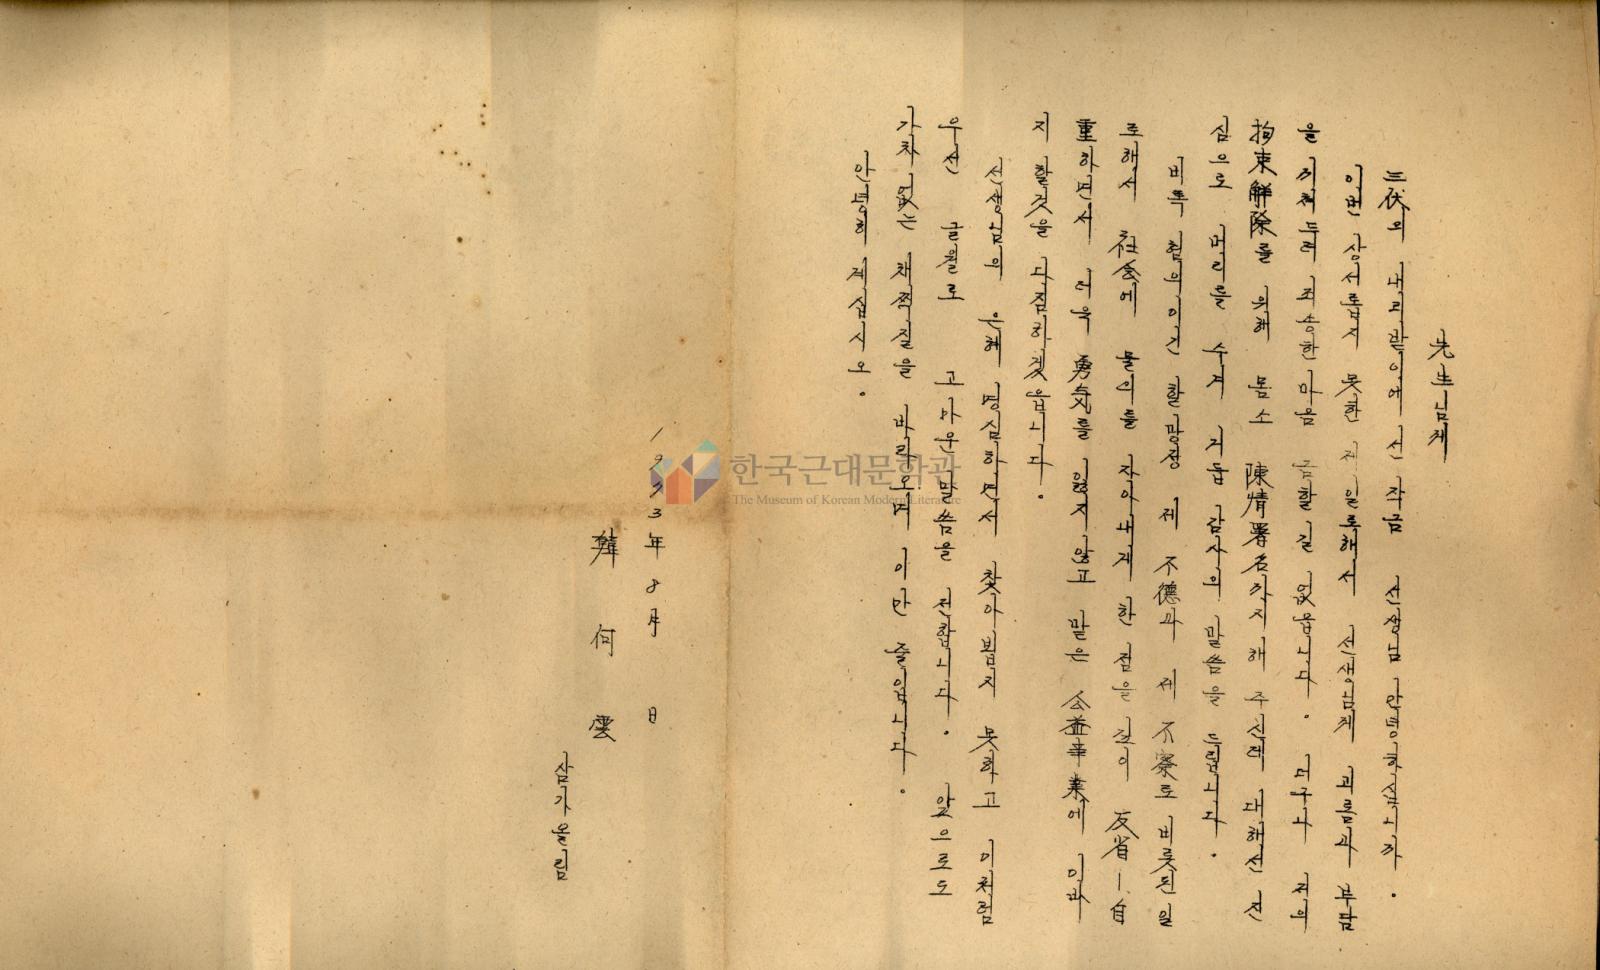 先生님께
三伏의 내리받이에 선 작금 선생님 안녕하십니까.
이번 상서롭지 못한 제 일로해서 선생님께 괴로움과 부담
을 끼쳐드려 죄송한 마음 금할길 없읍니다. 더구나 저의
拘束解除를 위해 몸소 陳情署名까지 해 주신데 대해선 진
심으로 머리를 숙여 거듭 감사의 말씀을 드립니다.
비록 혐의이긴 할망정 제 不德과 제 不察로 비롯된 일
로해서 社会에 물의를 자아내게 한 점을 깊이 反省—自
重하면서 더욱 勇気를 잃지 않고 맡은 公益事業에 이바
지 할것을 다짐하겠읍니다.
선생님의 은혜 명심하면서 찾아뵙지 못하고 이처럼
우선 글월로 고마운 말씀을 전합니다. 앞으로도
가차없는 채찍질을 바라오며 이만 줄입니다.
안녕히 계십시오.
1973年 8月 日
韓何雲
삼가올림
한국근대문학관
The Museum of Korean Modern Literature